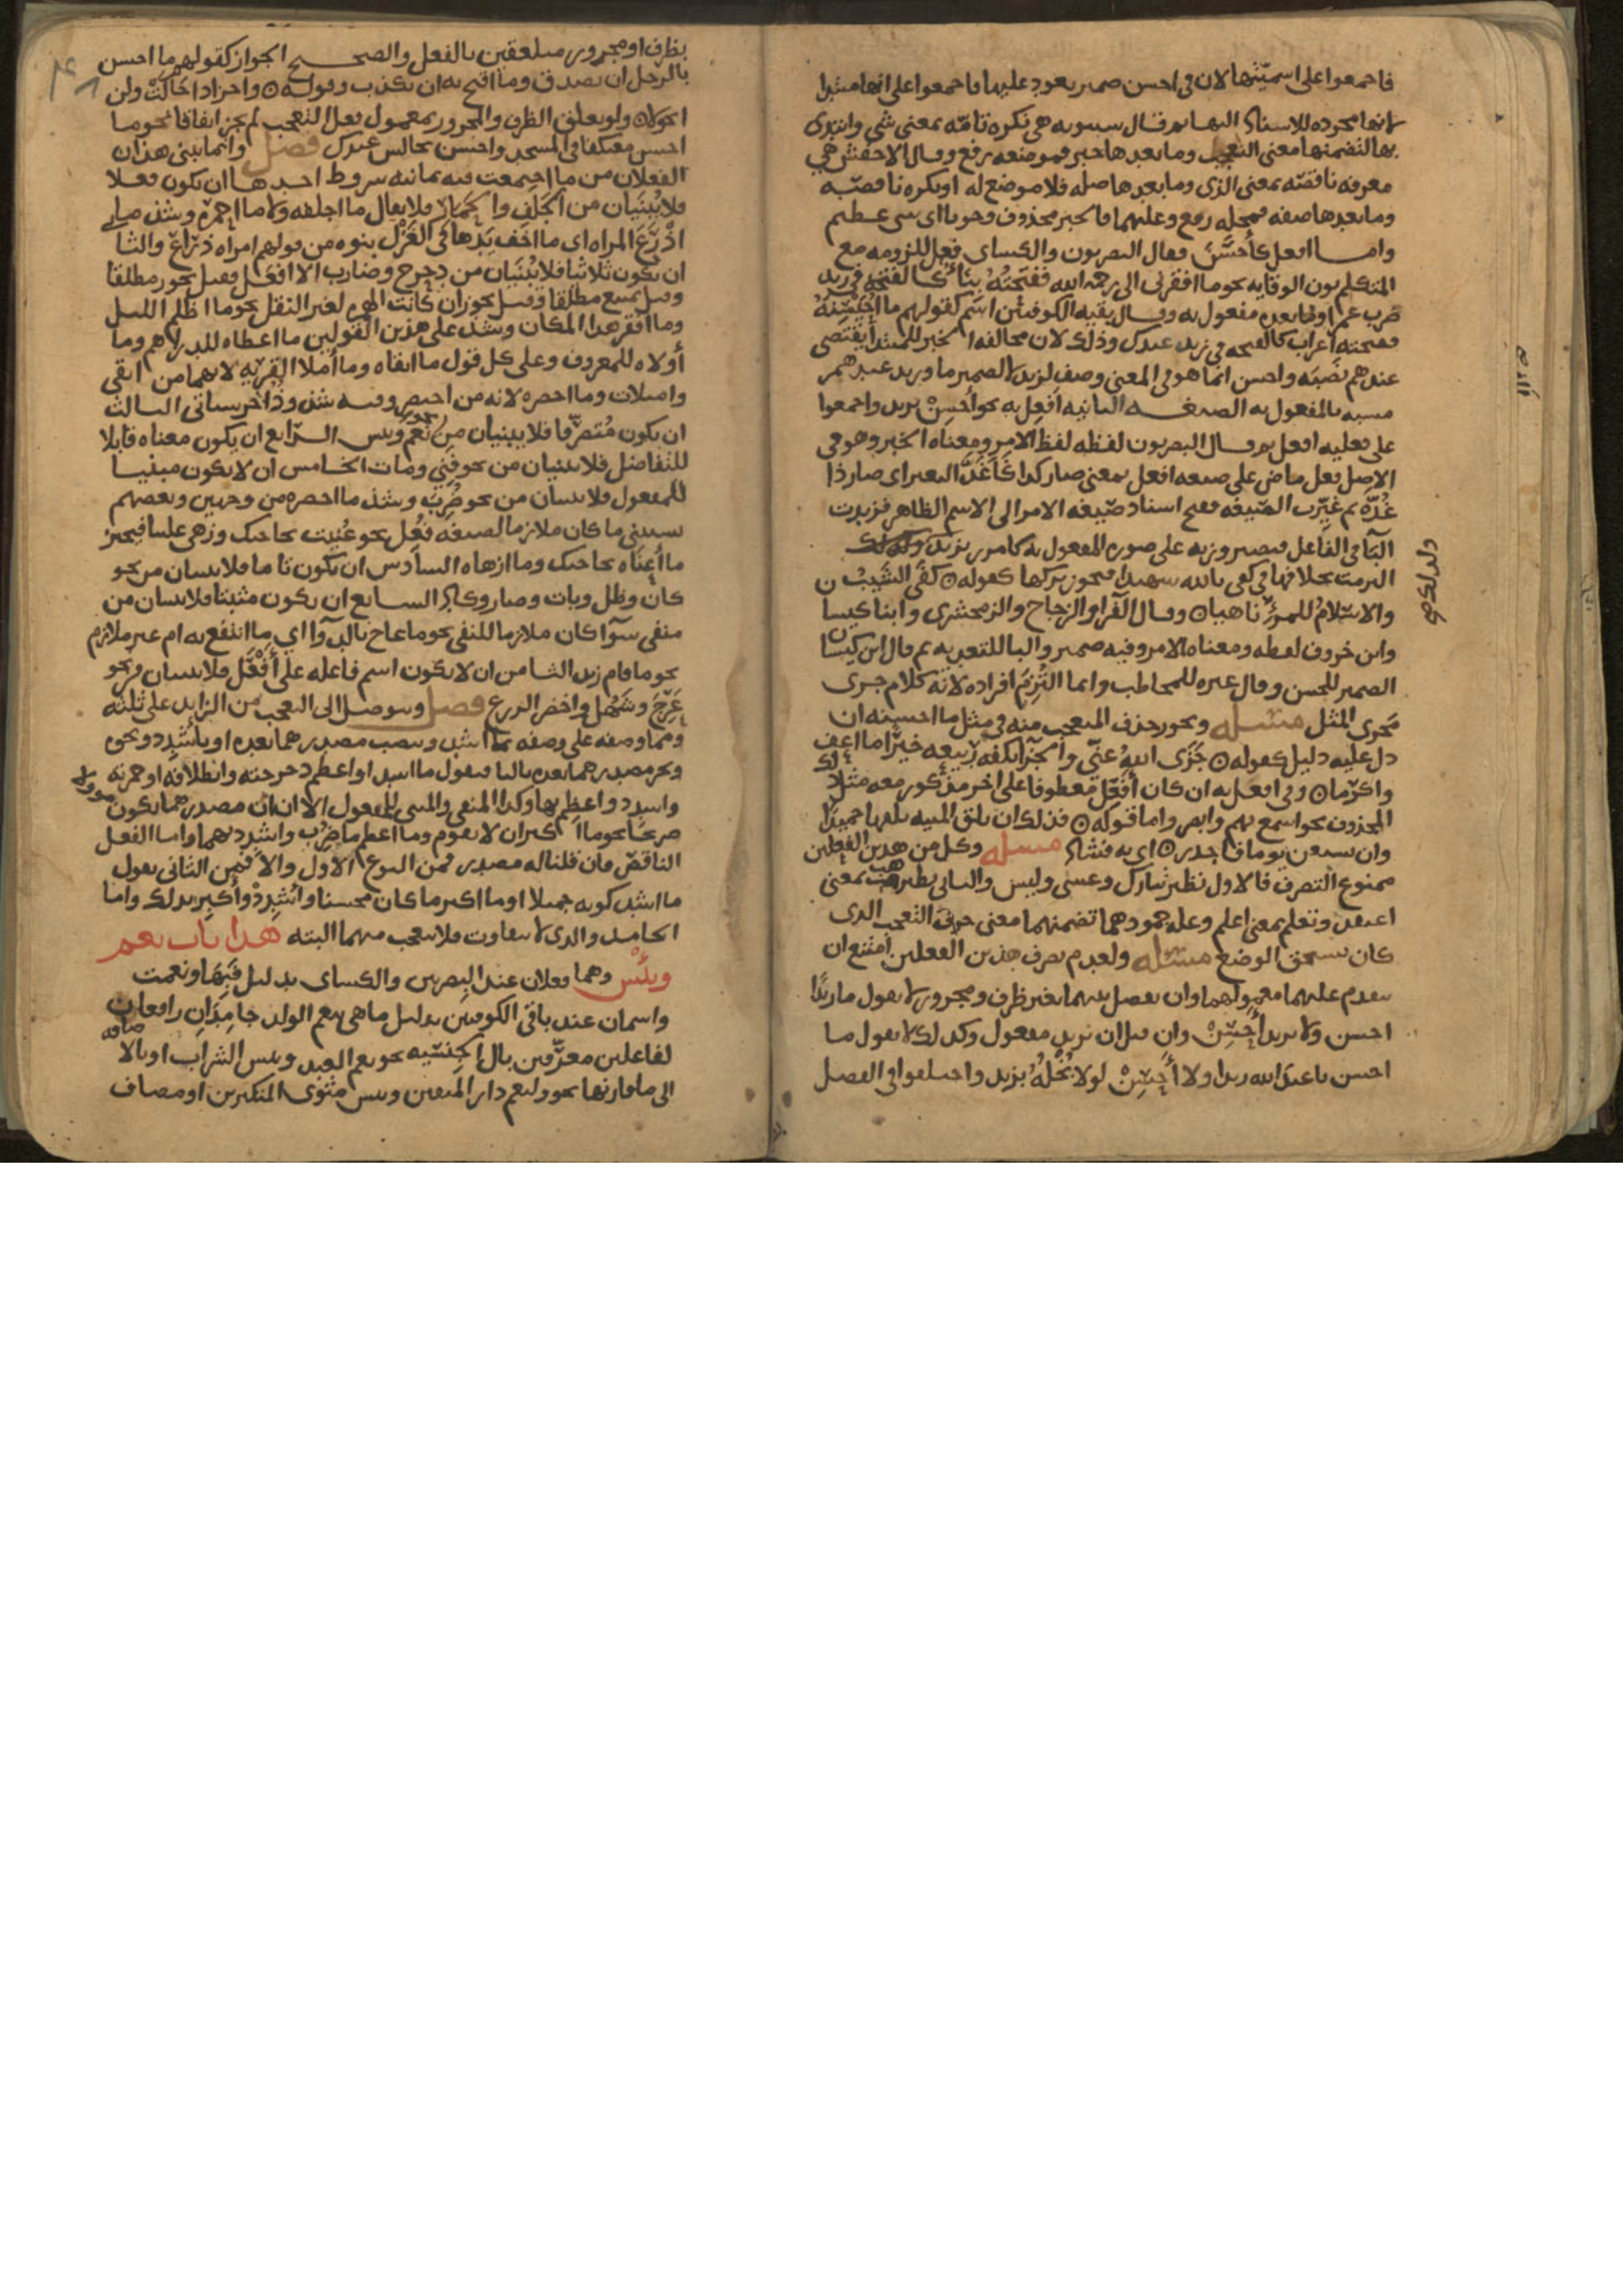 فاجمعوا على اسميتها لان في احسن ضمير يعود عليها فاجمعوا على انها مبتدا
لانها مجرده للاسناد اليها ثم قال سيبويه هي نكره تامه بمعنى شي وابتدى
بها لتضمنها معنى التعجب وما بعدها خبر فموضعه رفع وقال الاخفش هي
معرفه ناقصه بمعنى الذي وما بعدها صله فلا موضع له او نكره ناقصه
وما بعدها صفه فمحله رفع وعليهما فالخبر محذوف وجوبا اي شي عظيم
واما افعل كأحسَنَ فقال البصريون والكساي فعل للزومه مع
المتكلم نون الوقايه نحو ما افقرني الى رحمه الله ففتحته بناء كالفتحه في زيد
ضرب عمرا وما بعده مفعول به وقال بقيه الكوفيين اسم لقولهم ما احيسنه
ففتحته اعراب كالفتحه في زيد عندك وذلك لان مخالفه الخبر للمبتدا يقتضي
عندهم نصبه واحسن انما هو في المعنى وصف لزيد لا لضمير ما وزيد عندهم
مشبه بالمفعول به الصيغه الثانيه افعِل به نحو أحسِنْ بزيد واجمعوا
على فعليه افعل ثم قال البصريون لفظه لفظ الامر ومعناه الخبر وهو في
الاصل فعل ماض على صيغه افعل بمعنى صار كذا كأغدَّ البعير اي صار ذا
غُدّه ثم غيّرت الصيغه فقبح اسناد صيغه الامر الى الاسم الظاهر فزيدت
البا في الفاعل ليصير على صوره المفعول به كامرر بزيد ولذلك
التزمت بخلافها في كفى بالله شهيدا فيجوز تركها كقوله كفى الشيبُ
والاسلامُ للمرءِ ناهيا وقال الفرا والزجاج والزمخشري وابنا كيسان
وابن خروف لفظه ومعناه الامر وفيه ضمير والبا للتعديه ثم قال ابن كيسان
الضمير للحسن وقال غيره للمخاطب وانما التُزِمَ افراده لانه كلام جرى
مَجرى المثل مسئله ويجوز حذف المتعجب منه في مثل ما احسنه ان
دل عليه دليل كقوله جَزَى اللهُ عنّي والجزاء بفضله ربيعه خيرًا ما اعف
واكرما وفي افعل به ان كان افعِل معطوفا على اخر مذكور معه مثل ذلك
المحذوف نحو اسمع بهم وابصر واما قوله فذلك ان يلق المنيه يلقها حميدًا
وان يستغن يوما فاجدر اي به فشاذ مسئله وكل من هذين الفعلين
ممنوع التصرف فالاول نظير تبارك وعسى وليس والثاني نظير هب بمعنى
اعتقد وتعلم بمعنى اعلم وعله جمودهما تضمنهما معنى حرف التعجب الذي
كان يستحق الوضع مسئله ولعدم تصرف هذين الفعلين امتنع ان
يتقدم عليهما معمولهما وان يفصل بينهما بغير ظرف ومجرور لا يقول ما زيدًا
احسن ولا بزيد أحسِنْ وان قيل ان بزيد مفعول وكذلك لا يقول ما
احسن يا عبد الله زيدا ولا أحسِنْ لولا بُخْلُهُ بزيد واختلفوا في الفصل
ولذلك صح
بظرف او مجرور متعلقين بالفعل والصحيح الجواز كقولهم ما احسن
بالرجل ان يصدق وما اقبح به ان يكذب وقوله واحر اذا حالت ولن
احولا ولو تعلق الظرف والمجرور بمعمول فعل التعجب لم يجز اتفاقا نحو ما
احسن معتكفا في المسجد واحسن بجالس عندك فصل وانما يبنى هذان
الفعلان من ما اجتمعت فيه ثمانيه شروط احدها ان يكون فعلا
فلا يُبنَيان من الجَلِف والحمار فلا يقال ما اجلفه ولا ما احمره وشذ ما
اذْرَعَ المراه اي ما اخف يَدَها في الغَزْل بنوه من قولهم امراه ذراع والثاني
ان يكون ثلاثيا فلا يُبْنَيان من دحرج وضارب الا افعل فقيل يجوز مطلقا
وقيل يمتنع مطلقا وقيل يجوز ان كانت الهمزه لغير النقل نحو ما اظلم الليل
وما أقفر هذا المكان وشذ على هذين القولين ما اعطاه للدراهم وما
أولاه للمعروف وعلى كل قول ما اتقاه وما أملا القِرْبَه لانهما من اتقى
وامتلات وما اخصره لانه من اختصر وفيه شذوذ اخر سياتي الثالث
ان يكون مُتصرّفا فلا يبنيان من نحو نعم وبئس الرابع ان يكون معناه قابلا
للتفاضل فلا يبنيان من نحو فَنِي ومات الخامس ان لا يكون مبنيا
للمفعول فلا يبنيان من نحو ضُرِبَ وشذ ما اخصره من وجهين وبعضهم
يستثني ما كان ملازما لصيغه فُعِل نحو عُنِيت بحاجتك وزهى علينا فيجيز
ما أعناه بحاجتك وما ازهاه السادس ان يكون تاما فلا يبنيان من نحو
كان وظل وبات وصار وكاد السابع ان يكون مثبتا فلا يبنيان من
منفي سوا كان ملازما للنفي نحو ما عاج بالدوا اي ما انتفع به ام غير ملازم
نحو ما قام زيد الثامن ان لا يكون اسم فاعله على أفْعَل فلا يبنيان من نحو
عَرِجَ وشَهُل وخضر الزرع فصل ويتوصل الى التعجب من الزايد على ثلثه
ومما وصفه على وصفه بما اشد وينصب مصدرهما بعده او باشدِد ونحوه
ويجر مصدرهما بعده بالبا فيقول ما اشد او اعظم دحرجته وانطلاقه او حمرته
واشدِد واعظِم بها وكذا المنفي والمبني للمفعول الا ان مصدرهما يكون
مؤولا لا
صريحًا نحو ما اكثر ان لا يقوم وما اعظم ما ضُرِب واشدِد بهما واما الفعل
الناقص فان قلنا له مصدر فمن النوع الاول والا فمن الثاني يقول
ما اشد كونه جميلا او ما اكثر ما كان محسنا واشدِدْ وأكثِر بذلك واما
الجامد والذي لا يتفاوت فلا يتعجب منهما البته هذا باب نعم
وبئس وهما فعلان عند البصريين والكساي بدليل فَبِها ونعمت
واسمان عند باقي الكوفيين بدليل ما هي بنعم الولد جامِدَانِ رافعان
لفاعلين معرّفين بال الجنسيه نحو نعم العبد وبئس الشراب او بالاضافه
الى ما قارنها نحو ولنعم دار المتقين وبئس مثوى المتكبرين او مضاف